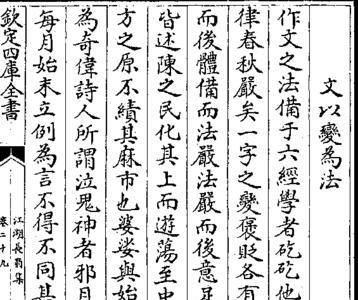 文以變為法
作文之法備于六經學者矻矻他
律春秋嚴矣一字之變褒貶各有
而後體備而法嚴法嚴而後意足
皆述陳之民化其上而遊蕩至
方之原不績其麻市也婆娑與始
為奇偉詩人所謂泣鬼神者邪
每月始末立例為言不得不同其
欽定四庫全書
江湖長翁集
卷二十九